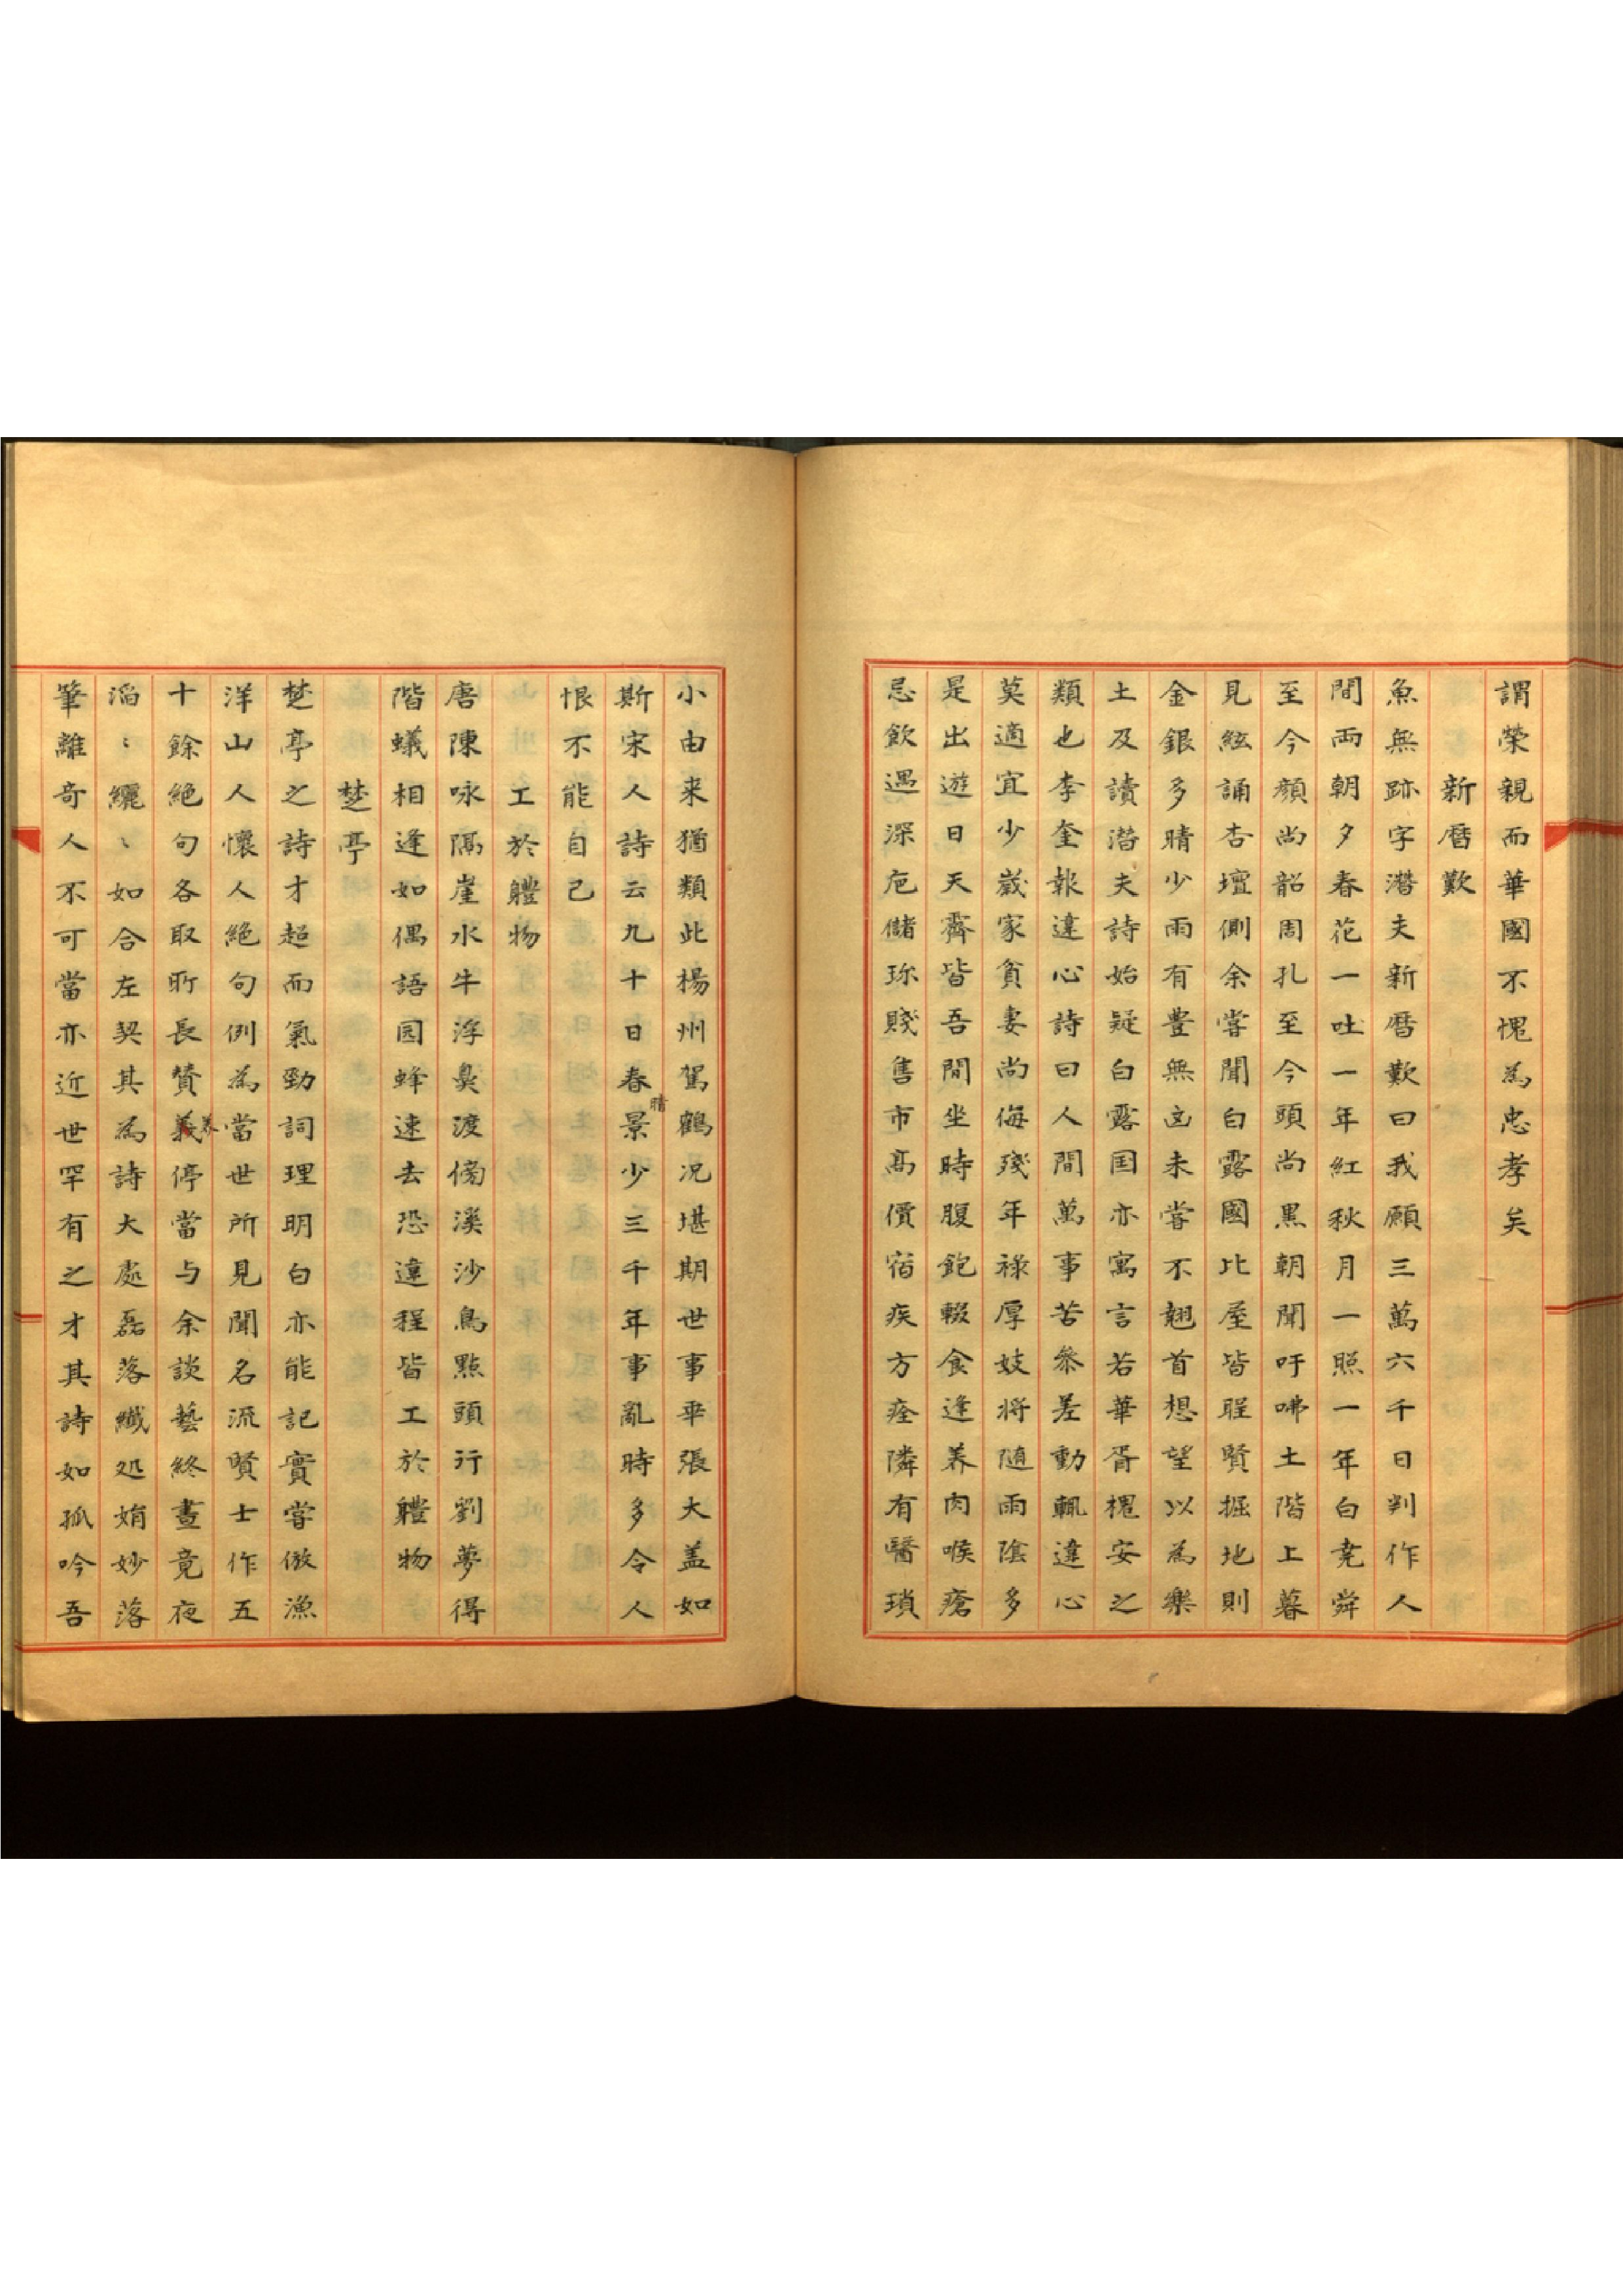 謂榮親而華國不愧為忠孝矣
新曆歎
魚無跡字潛夫新曆歎曰我願三萬六千日判作人
間兩朝夕春花一吐一年紅秋月一照一年白堯舜
至今顏尚韶周孔至今頭尚黒朝聞吁咈土階上暮
見絃誦杏壇側余嘗聞白露國比屋皆聖賢掘地則
金銀多晴少雨有豊無凶未嘗不翹首想望以為樂
土及讀潛夫詩始疑白露国亦寓言若華胥槐安之
類也李奎報違心詩曰人間萬事苦叅差動輒違心
莫適宜少歲家貧妻尚侮殘年祿厚妓將随雨陰多
是出遊日天霽皆吾間坐時腹飽輟食逢养肉喉瘡
忌飲遇深巵儲珎賤售市髙價宿疾方痊隣有醫瑣
小由来猶類此楊州駕鶴况堪期世事乖張大盖如
斯宋人詩云九十日春景少三千年事亂時多令人
晴
恨不能自己
工於軆物
唐陳咏隔崖水牛浮鼻渡傍溪沙鳥點頭行劉夢得
階蟻相逢如偶語园蜂速去恐違程皆工於軆物
楚亭
楚亭之詩才超而氣勁詞理明白亦能記實嘗倣漁
洋山人懷人絶句例為當世所見聞名流賢士作五
十餘絶句各取所長賛義停當与余談藝終晝竟夜
滔〻纚〻如合左契其為詩大處磊落纖処娟妙落
筆離奇人不可當亦近世罕有之才其詩如孤吟吾